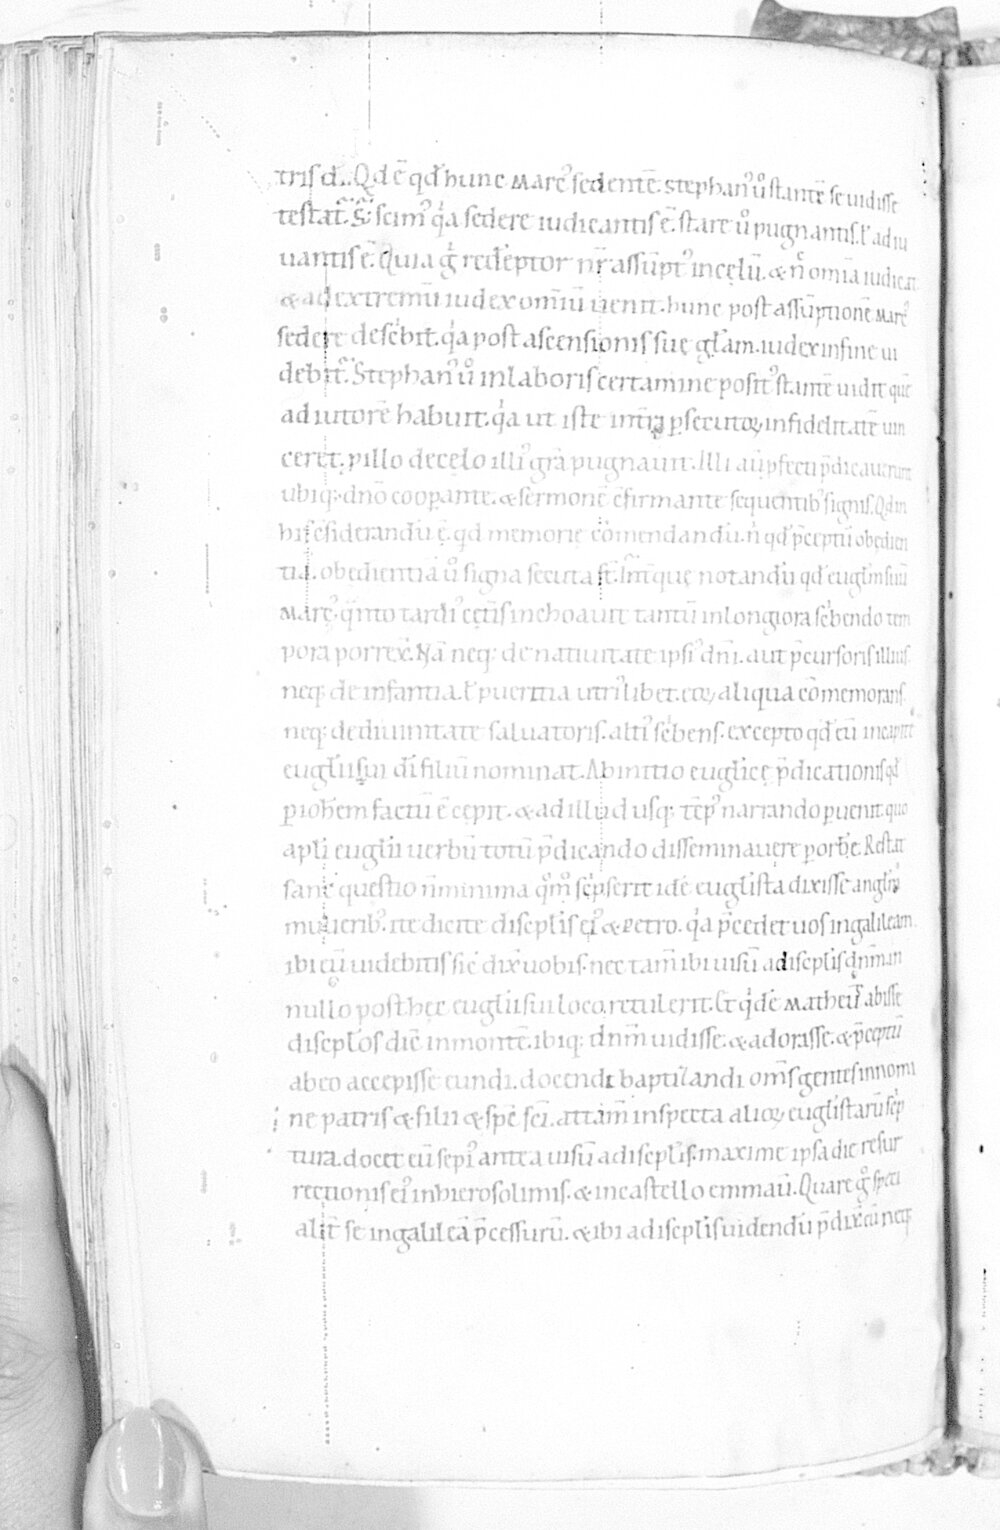 tris d̄. Qd ē qd̄ hunc Marc᾽ sedentē. stephan᾽ u᷎ stantē se uidisse
testat᷑. S; scim᾽ q̇a sedere iudicantis ē. stare u᷎ pugnantis. ł adiu
uantis ē. Quia g̊ redēptor nr̄ assūpt᾽ in cęlū. & n̄c omīa iudicat.
& ad extremū iudex omniū uenit. hunc post assūptionē marc᾽
sedere describit. q̇a post ascensionis suę gl̄am. iudex in fine ui
debit᷑. Stephan᾽ u᷎ in laboris certamine posit᾽ stantē uidit quē
adiutorē habuit. q̇a ut iste in tr̄a ꝑsecutoꝝ infidelitatē uin
ceret. ꝑ illo de cęlo illi᾽ gr̄a pugnauit. Illi aū ꝓfecti p̄dicauerunt
ubiq; dn̄o cooꝑante. & sermonē ɔfirmante sequentib᾽ signis. Qd in
his ɔsiderandū ē. qd memorię cōmendandū. n̄ qd̄ p̄ceptū obędien
tia. obedientiā u᷎ signa secuta st̄. Int̄ que notandū qd̄ eugl̄m suū
Marc᾽ q̄nto tardi᾽ cęt̄is inchoauit tantū in longiora sc̄bendo tem
pora porrex̄. Nā neq; de natiuitate ipsi᾽ dn̄i. aut p̄cursoris illius.
neq; de infantia. ł pueritia utri᾽libet. eoꝝ aliqua cōmemorans.
neq; de diuinitate saluatoris. alti᾽ sc̄bens. excepto qd̄ eū in capite
eugl̄ii sui dī filiū nominat. Ab initio euglicę p̄dicationis qd̄
ꝑ ioh̄em factū ē cępit. & ad illud usq; tēp᾽ narrando ꝑuenit. quo
apl̄i eugl̄ii uerbū totū p̄dicando disseminauere ꝑ orbē. Restat
sane questio n̄ minima q᷎m᷎ sc̄pserit idē eugl̄ista dixisse angl̄m
mulierib᾽. ite dicite discipl̄is ei᾽ & petro. q̇a p̄cedet uos in galileam.
ibi eū uidebitis sic̄ dix̄ uobis. nec tam̄ ibi uisū a discpl̄is dn̄m in
nullo post hęc eugl̄ii sui loco retulerit. Et q̇dē Matheus abisse
discpl̄os dic̄ in montē. ibiq; dn̄m uidisse. & adorasse. & p̄ceptū
ab eo accepisse eundi. docendi baptizandi om̄s gentes in nomi
ne patris & filii & sp̄c sc̄i. attam̄ inspecta alioꝝ euglistarū sc̄p
tura. docet eū sepi᾽ antea uisū a discpl̄is. maxime ipsa die resur
rectionis ei᾽ in hierosolimis. & in castello emmaū. Quare g̊ speci
alit̄ se in galileā p̄cessurū. & ibi a discpl̄is uidendū p̄dix̄. cū neq;